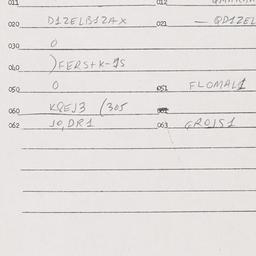 011 012
020 D1ZELB1ZAX 021 — QD1ZEL
030 0
040 )FERS+K-1S
050 0 051 FLOMAL1
060 KQEJ3 (305
062 JO,DR1 063 GROJS1